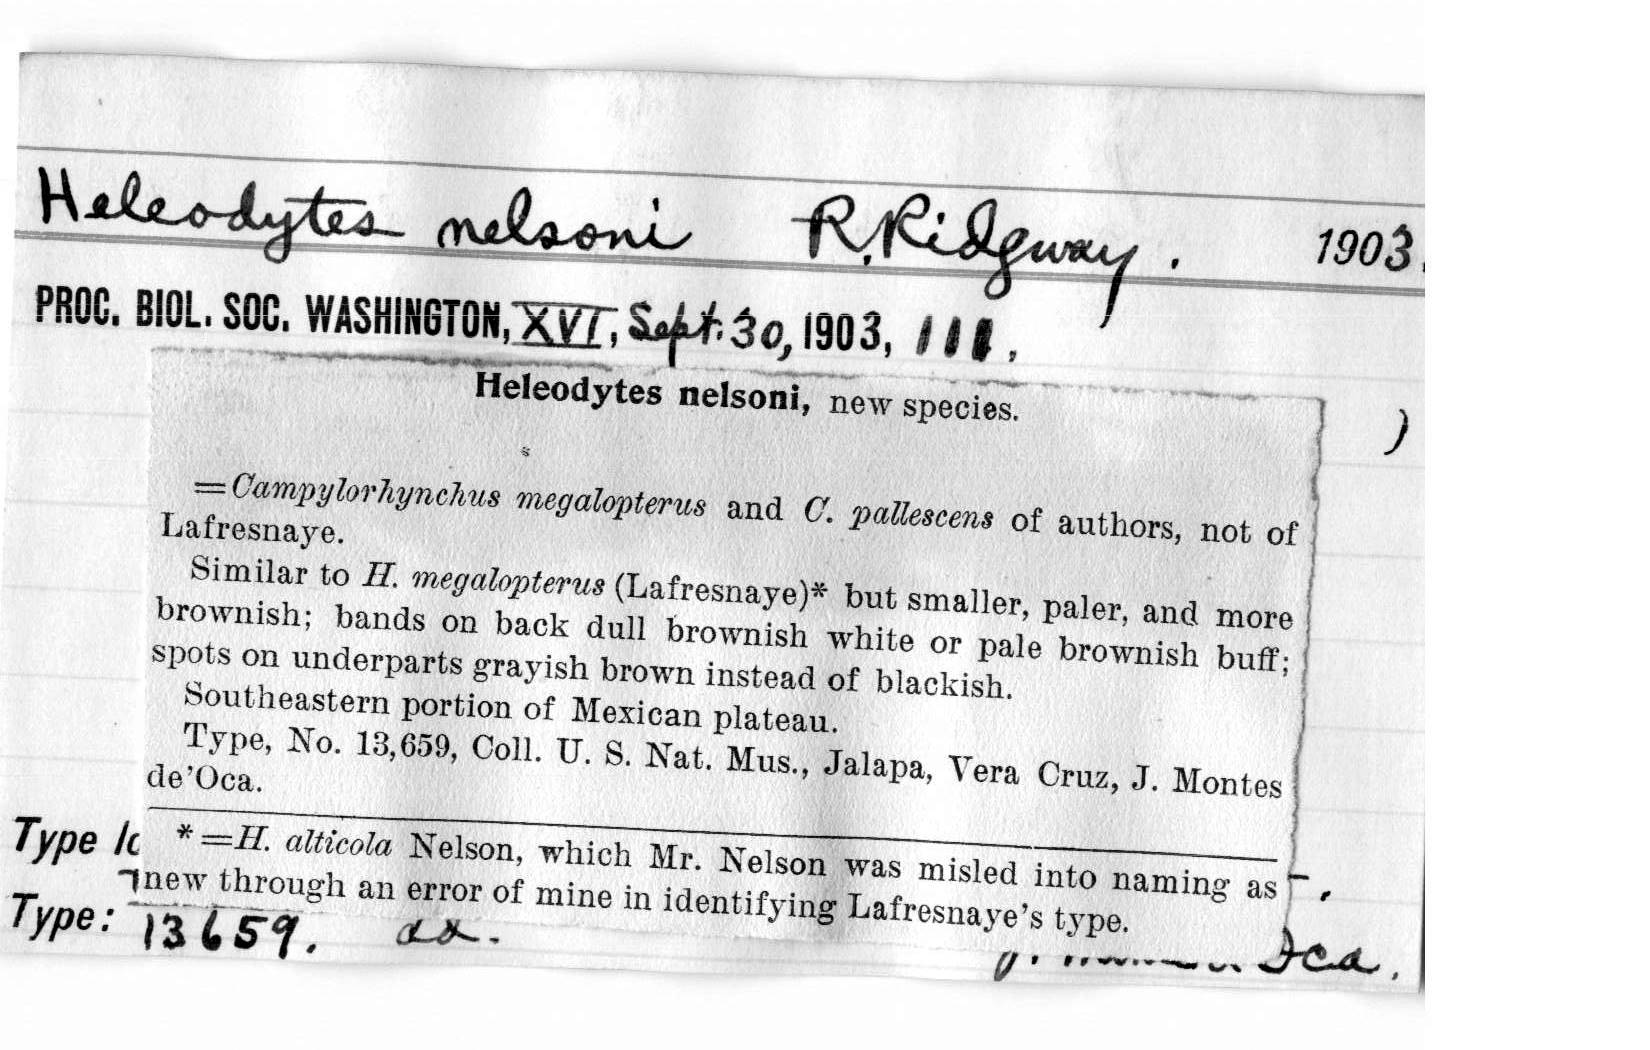 Heleodytes nelsoni R. Ridgway. 1903.
PROC. BIOL. SOC. WASHINGTON, XVI, Sept. 30, 1903, 111.
Heleodytes nelsoni, new species.
)
=Campylorhynchus megalopterus and C. pallescens of authors, not of
Lafresnaye.
Similar to H. megalopterus (Lafresnaye)* but smaller, paler, and more
brownish; bands on back dull brownish white or pale brownish buff;
spots on underparts grayish brown instead of blackish.
Southeastern portion of Mexican plateau.
Type, No. 13,659, Coll. U. S. Nat. Mus., Jalapa, Vera Cruz, J. Montes
de'Oca.
Type
*=H. alticola Nelson, which Mr. Nelson was misled into naming as
new through an error of mine in identifying Lafresnaye's type.
Type: 13659. ad. Oca.